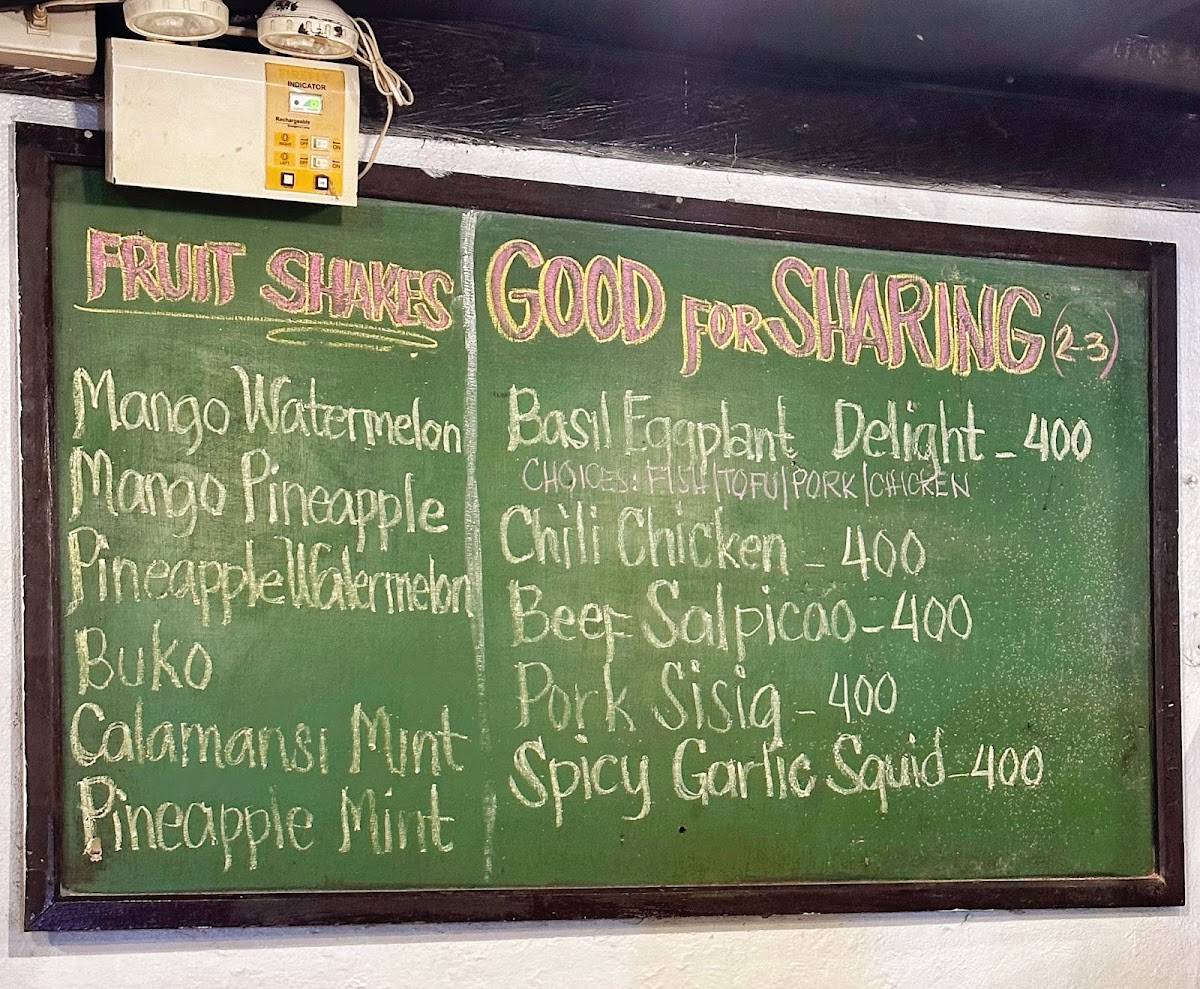 INDICATOR
Rechargeable
RIGHT OFF ON
LEFT OFF ON
FRUIT SHAKES
Mango Watermelon
Mango Pineapple
Pineapple Watermelon
Buko
Calamansi Mint
Pineapple Mint
GOOD FOR SHARING (2-3)
Basil Eggplant Delight - 400
CHOICES: FISH|TOFU|PORK|CHICKEN
Chili Chicken - 400
Beef Salpicao - 400
Pork Sisig - 400
Spicy Garlic Squid - 400